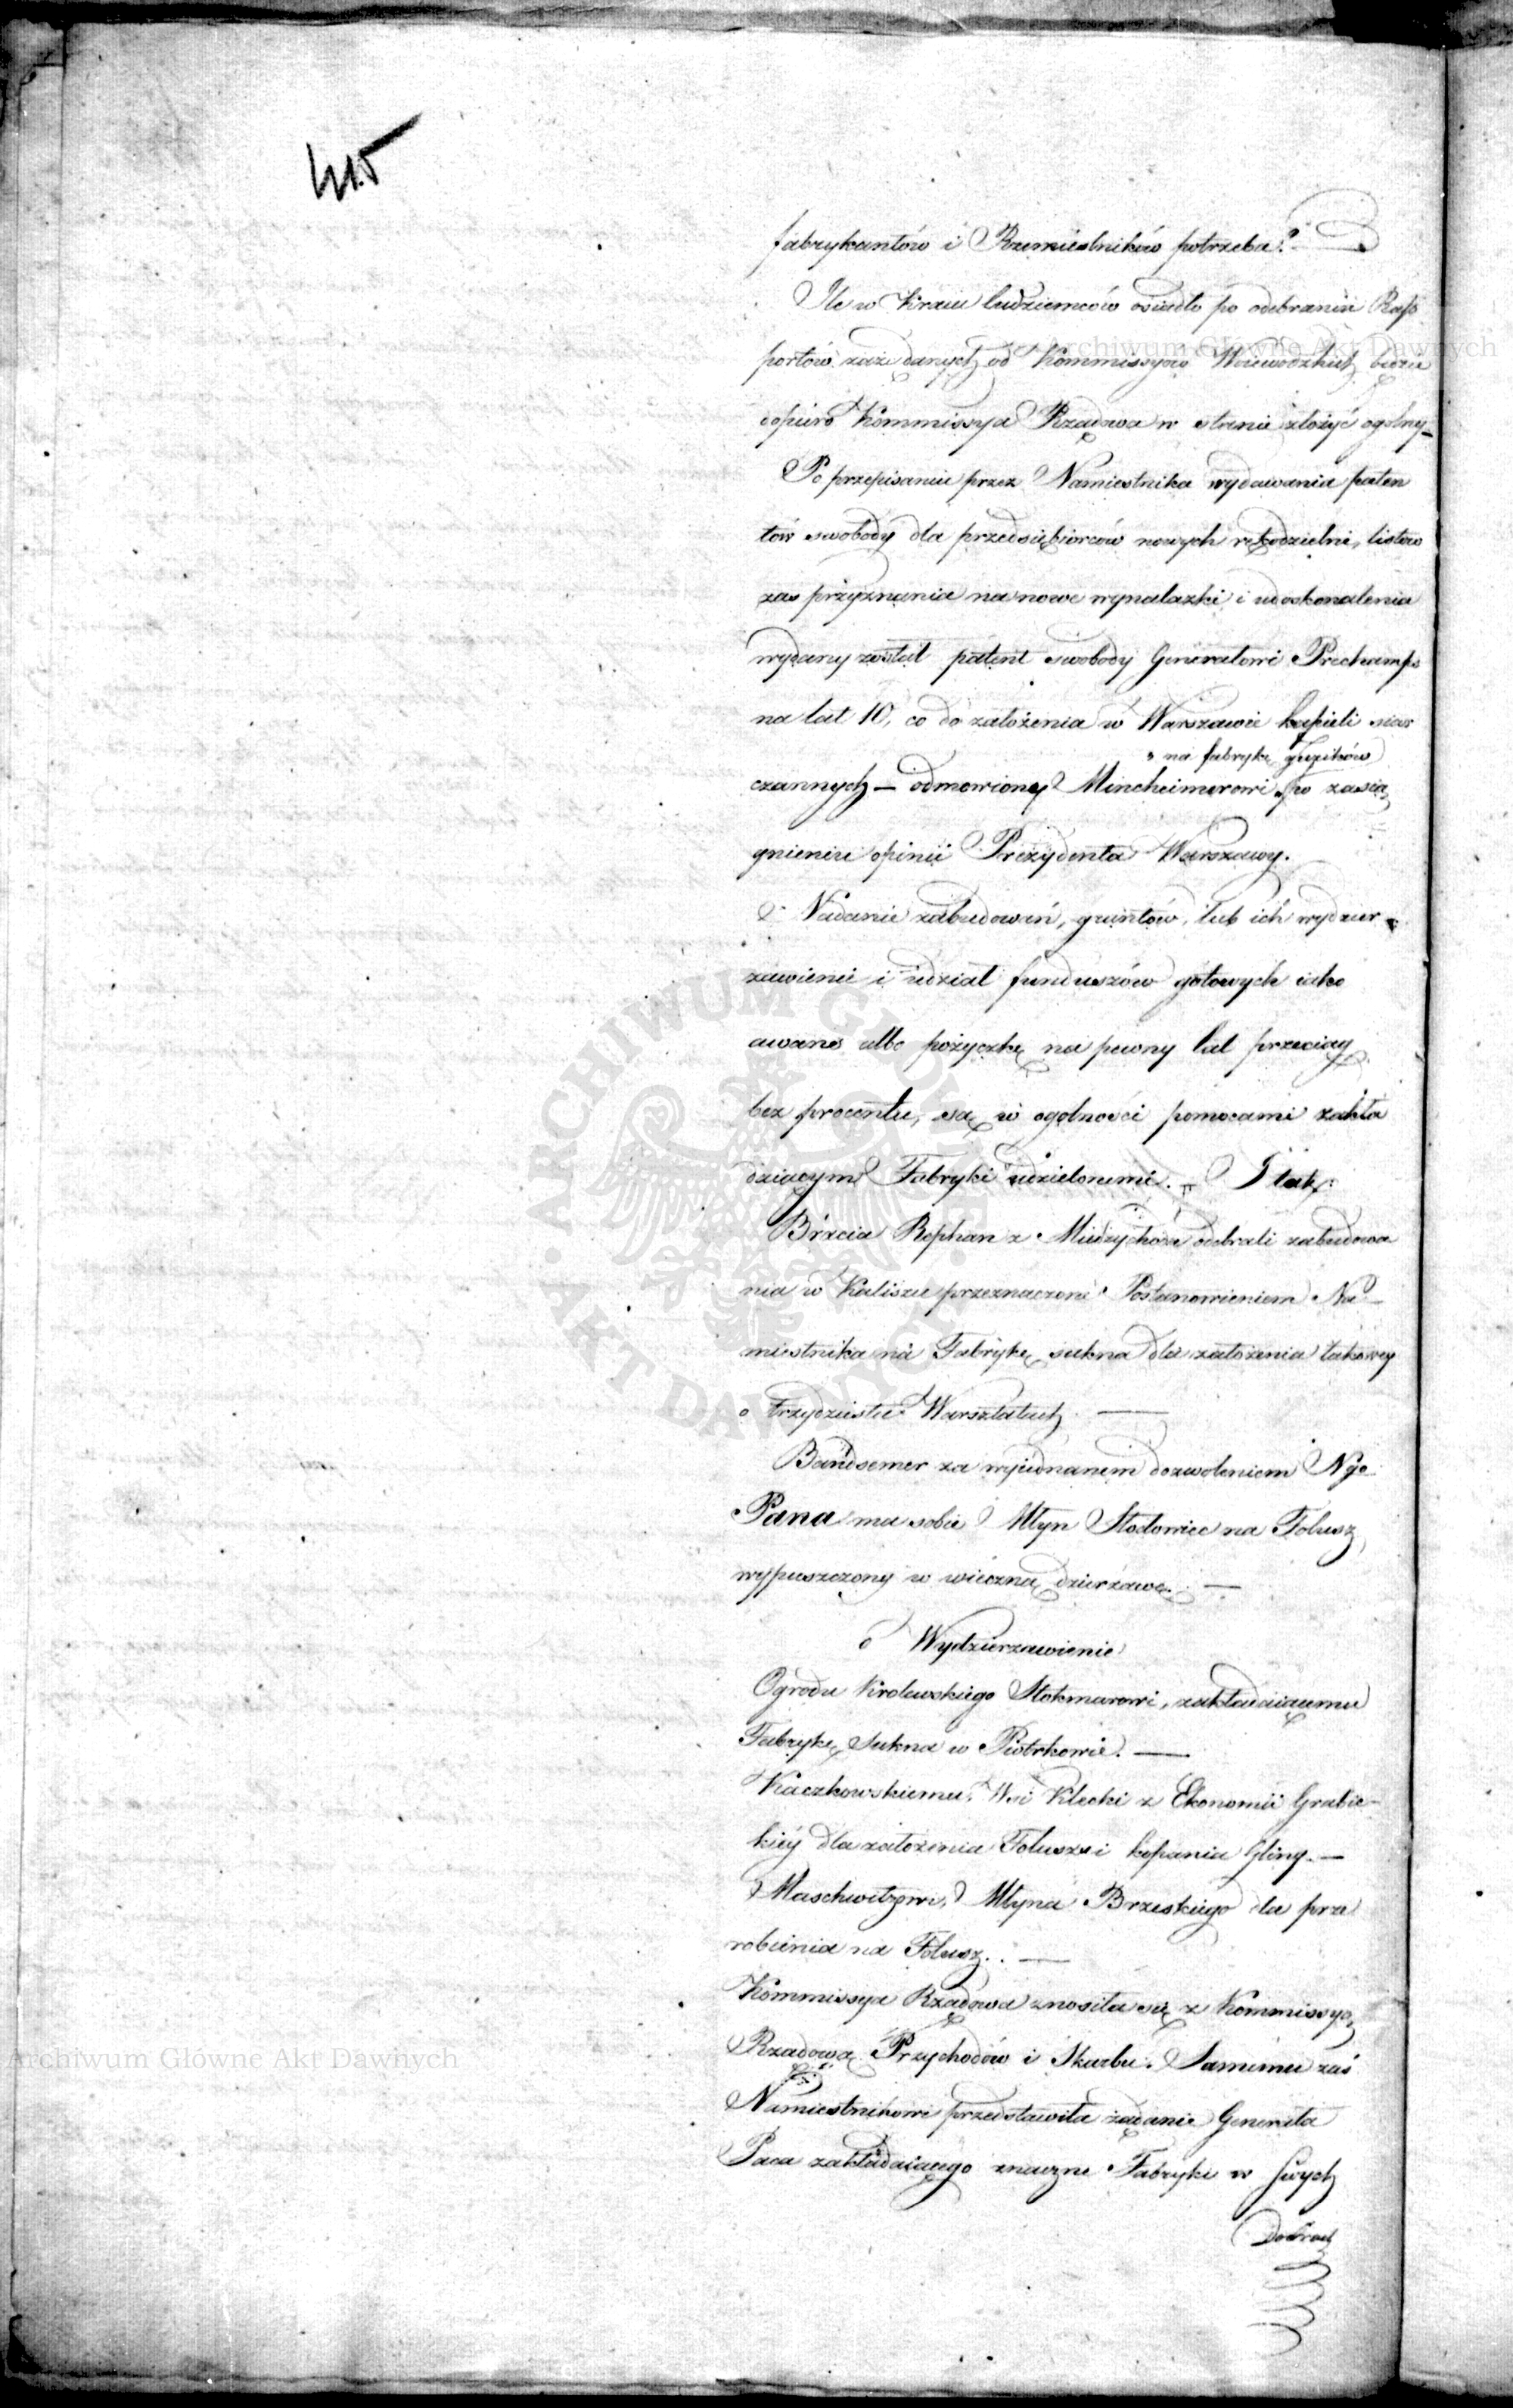 415
fabrykantów i Rzemieslników potrzeba.
Ile w Kraiu Cudziemców osiadło po odebraniu Rap
portów zażądanych od Kommissyów Woiewodzkich będzie
dopiero Kommissya Rządowa w stanie złożyć ogolny
Po przepisaniu przez Namiestnika wydawania paten
tów swobody dla przedsiębiorców nowych rękodzielni, listów
zas przyznania na nowe wynalazki i udoskonalenia
wydany został patent swobody Generałowi Prechamps
na lat 10, co do założenia w Warszawie kąpieli siar
na fabrykę guzików
czannych — odmowiony Mincheimerowi po zasią
gnieniu opinii Prezydenta Warszawy.
Nadanie zabudowań, gruntów, lub ich wydzier
żawienie i udział funduszów gotowych iako
awans albo pożyczkę na pewny lat przeciąg
bez procentu, są w ogolności pomocami zakła
dziącym Fabryki udzielonemi. — I tak:
Bracia Rephan z Miedzychóda odebrali zabudowa
nia w Kaliszu przeznaczone Postanowieniem Na
miestnika na Fabrykę sukna dla założenia takowey
o trzydziestu Warsztatach. —
Bandsemer za wyiednanem dozwoleniem Nyo
Pana ma sobie Młyn Słodowiec na Folusz
wypuszczony w wieczną dzierżawę. —
Wydzierzawienie
Ogrodu Krolewskiego Stokmarowi, zakładaiącemu
Fabrykę Sukna w Piotrkowie. —
Kaczkowskiemu, Wsi Klecki z Ekonomii Grabie
kiéy dla założenia Folusza i kopania Gliny. —
Maschwitzowi, Młyna Brzeskiego dla prze
robienia na Folusz. —
Kommissya Rządowa znosiła się z Kommissyą
Rządową Przychodów i Skarbu. Samemu zaś
Namiestnikowi przedstawiła żądanie Generała
Paca zakładaiącego znaczne Fabryki w swych
Dobrach
Archiwum Główne Akt Dawnych
Archiwum Główne Akt Dawnych
ARCHIWUM GŁÓWNE AKT DAWNYCH